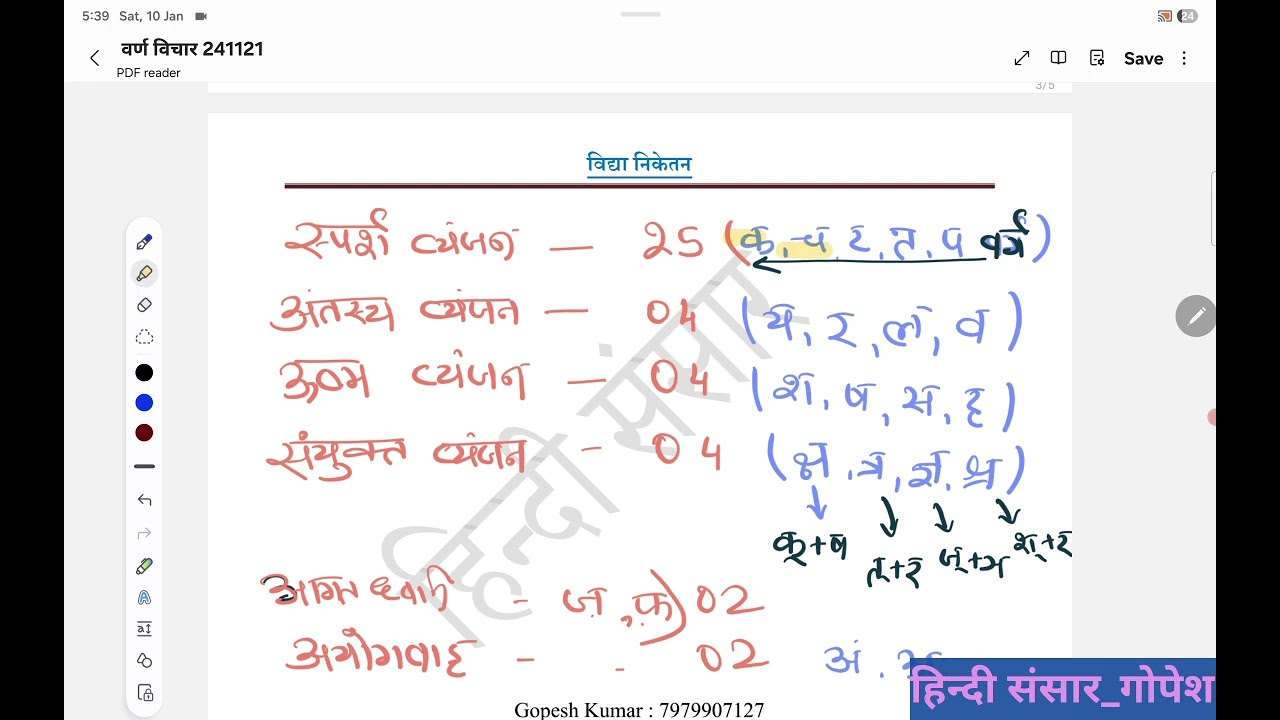 5:39 Sat, 10 Jan 24
वर्ण विचार 241121
PDF reader
Save
3/5
विद्या निकेतन
स्पर्श व्यंजन — 25 (क, च, ट, त, प वर्ग)
अंतस्थ व्यंजन — 04 (य, र, ल, व)
ऊष्म व्यंजन — 04 (श, ष, स, ह)
संयुक्त व्यंजन - 04 (क्ष, त्र, ज्ञ, श्र)
क्+ष त्+र ज्+ञ श्+र
आगत ध्वनि - ज़, फ़) 02
अयोगवाह - - 02 अं
हिन्दी संसार
हिन्दी संसार_गोपेश
Gopesh Kumar : 7979907127